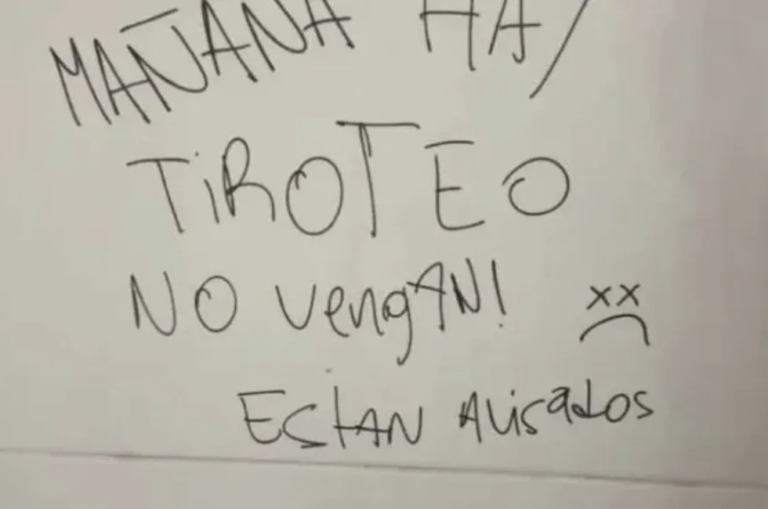 MAÑANA HAY
TiROTEO
NO VengAN!
EStAN AVisados